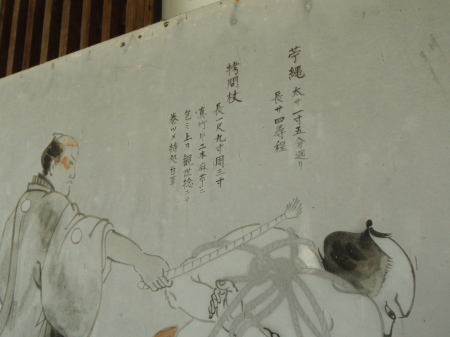 苧縄 太サ一寸五分廻り
長サ四尋程
拷問杖
長一尺九寸周三寸
真竹片二本麻布ニ
包ミ上ヲ観世捻ニテ
巻ツメ持処白革